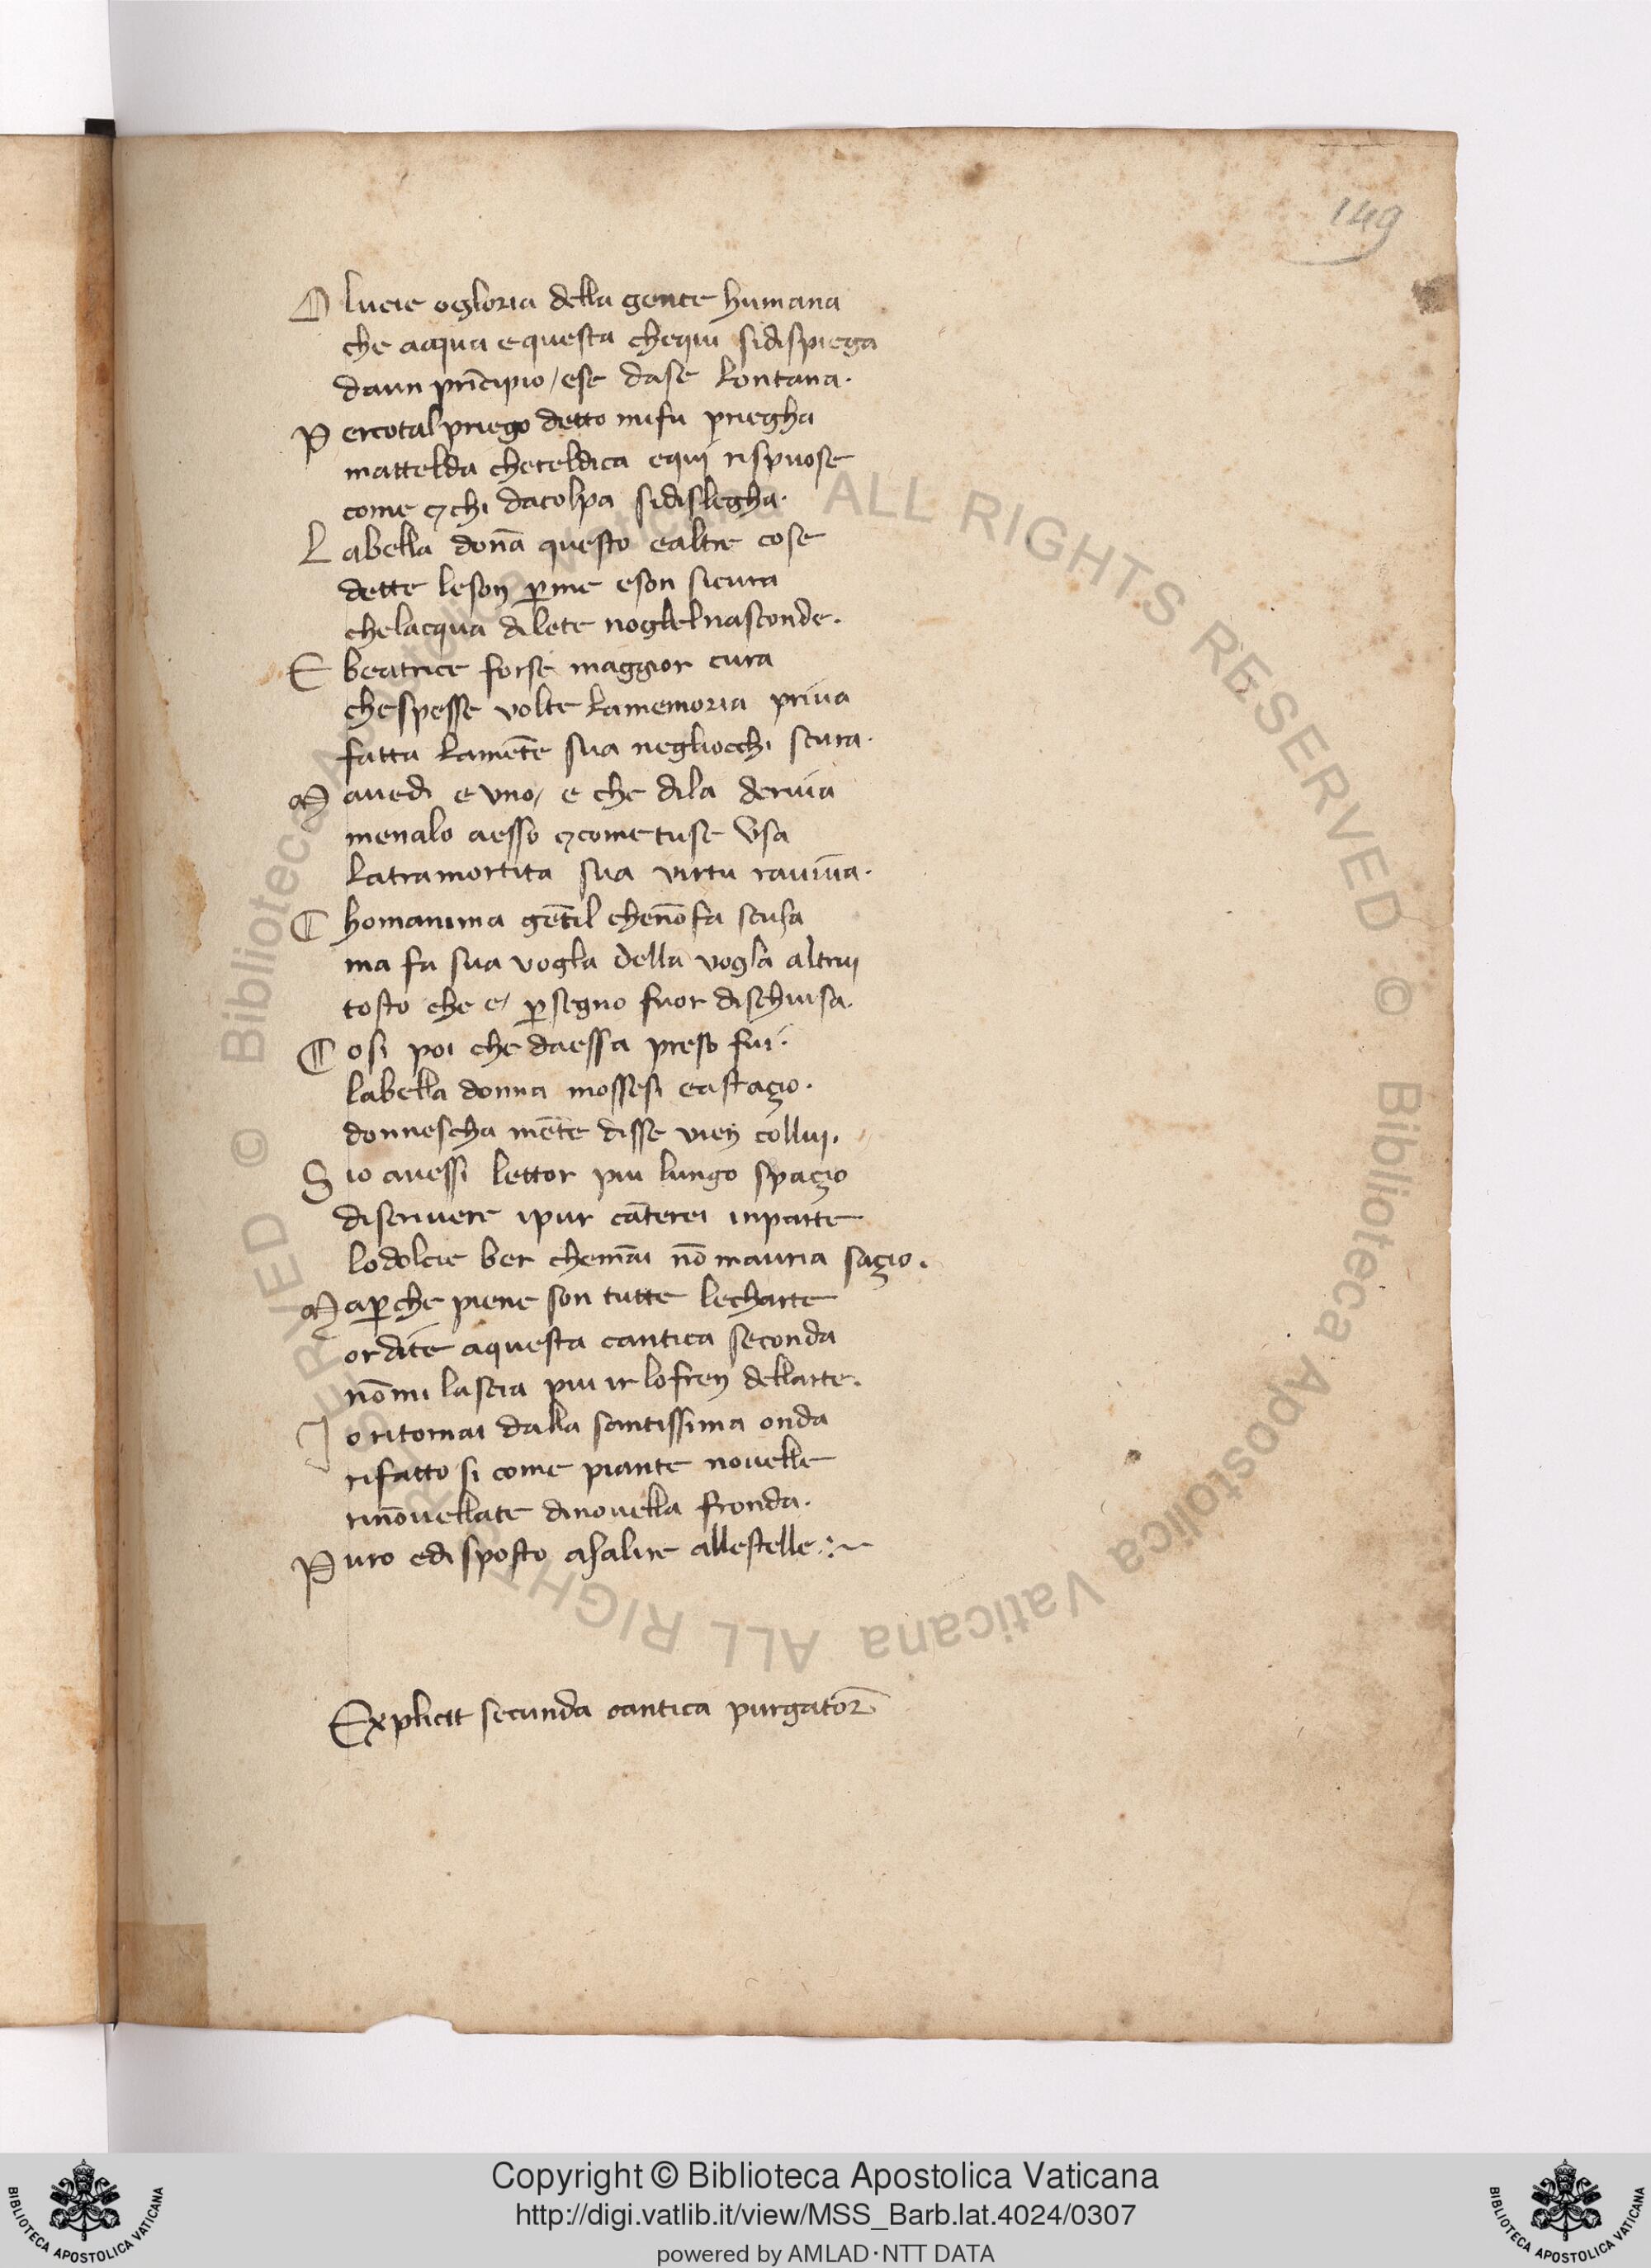 149
O lucie ogloria della gente humana
che acqua equesta chequi sidispiega
daun prīcipio / ese dase lontana.
P ercotal priego detto mifu priegha
mattelda cheteldica equi rispuose
come ⁊ chi dacolpa sidislegha.
L abella donā questo ealtre cose
dette leson ꝑme eson sicura
chelacqua dilete nogliel nasconde.
E beatrice forse maggior cura
chespesse volte lamemoria priua
fatta lamēte sua negliocchi scura.
M avedi e vno / e che dila deriua
menalo aesso ⁊ cometuse vsa
latramortita sua virtu rauiua.
C homanima gētil chenōfa scusa
ma fa sua vogla della vogla altrui
tosto che e / ꝑsegno fuor dischiusa.
C osi poi che daessa preso fui.
labella donna mossesi eastazio.
donnescha mēte disse vien collui.
S io avessi lettor piu lungo spazio
discriuere ipur cāterei inparte
lodolcie ber chemāi nō mauria sazio.
M aꝑche piene son tutte lecharte
ordite aquesta cantica seconda
nōmi lascia piu ir lofren dellarte.
I oritornai dalla santissima onda
rifatto si come piante nouelle
rinōuellate dinouella fronda.
P uro edisposto asalire allestelle :~
Explicit secunda cantica purgatoꝝ
© Biblioteca Apostolica Vaticana ALL RIGHTS RESERVED © Biblioteca Apostolica Vaticana ALL RIGHTS RESERVED
Copyright © Biblioteca Apostolica Vaticana
http://digi.vatlib.it/view/MSS_Barb.lat.4024/0307
powered by AMLAD·NTT DATA
BIBLIOTECA APOSTOLICA VATICANA
BIBLIOTECA APOSTOLICA VATICANA